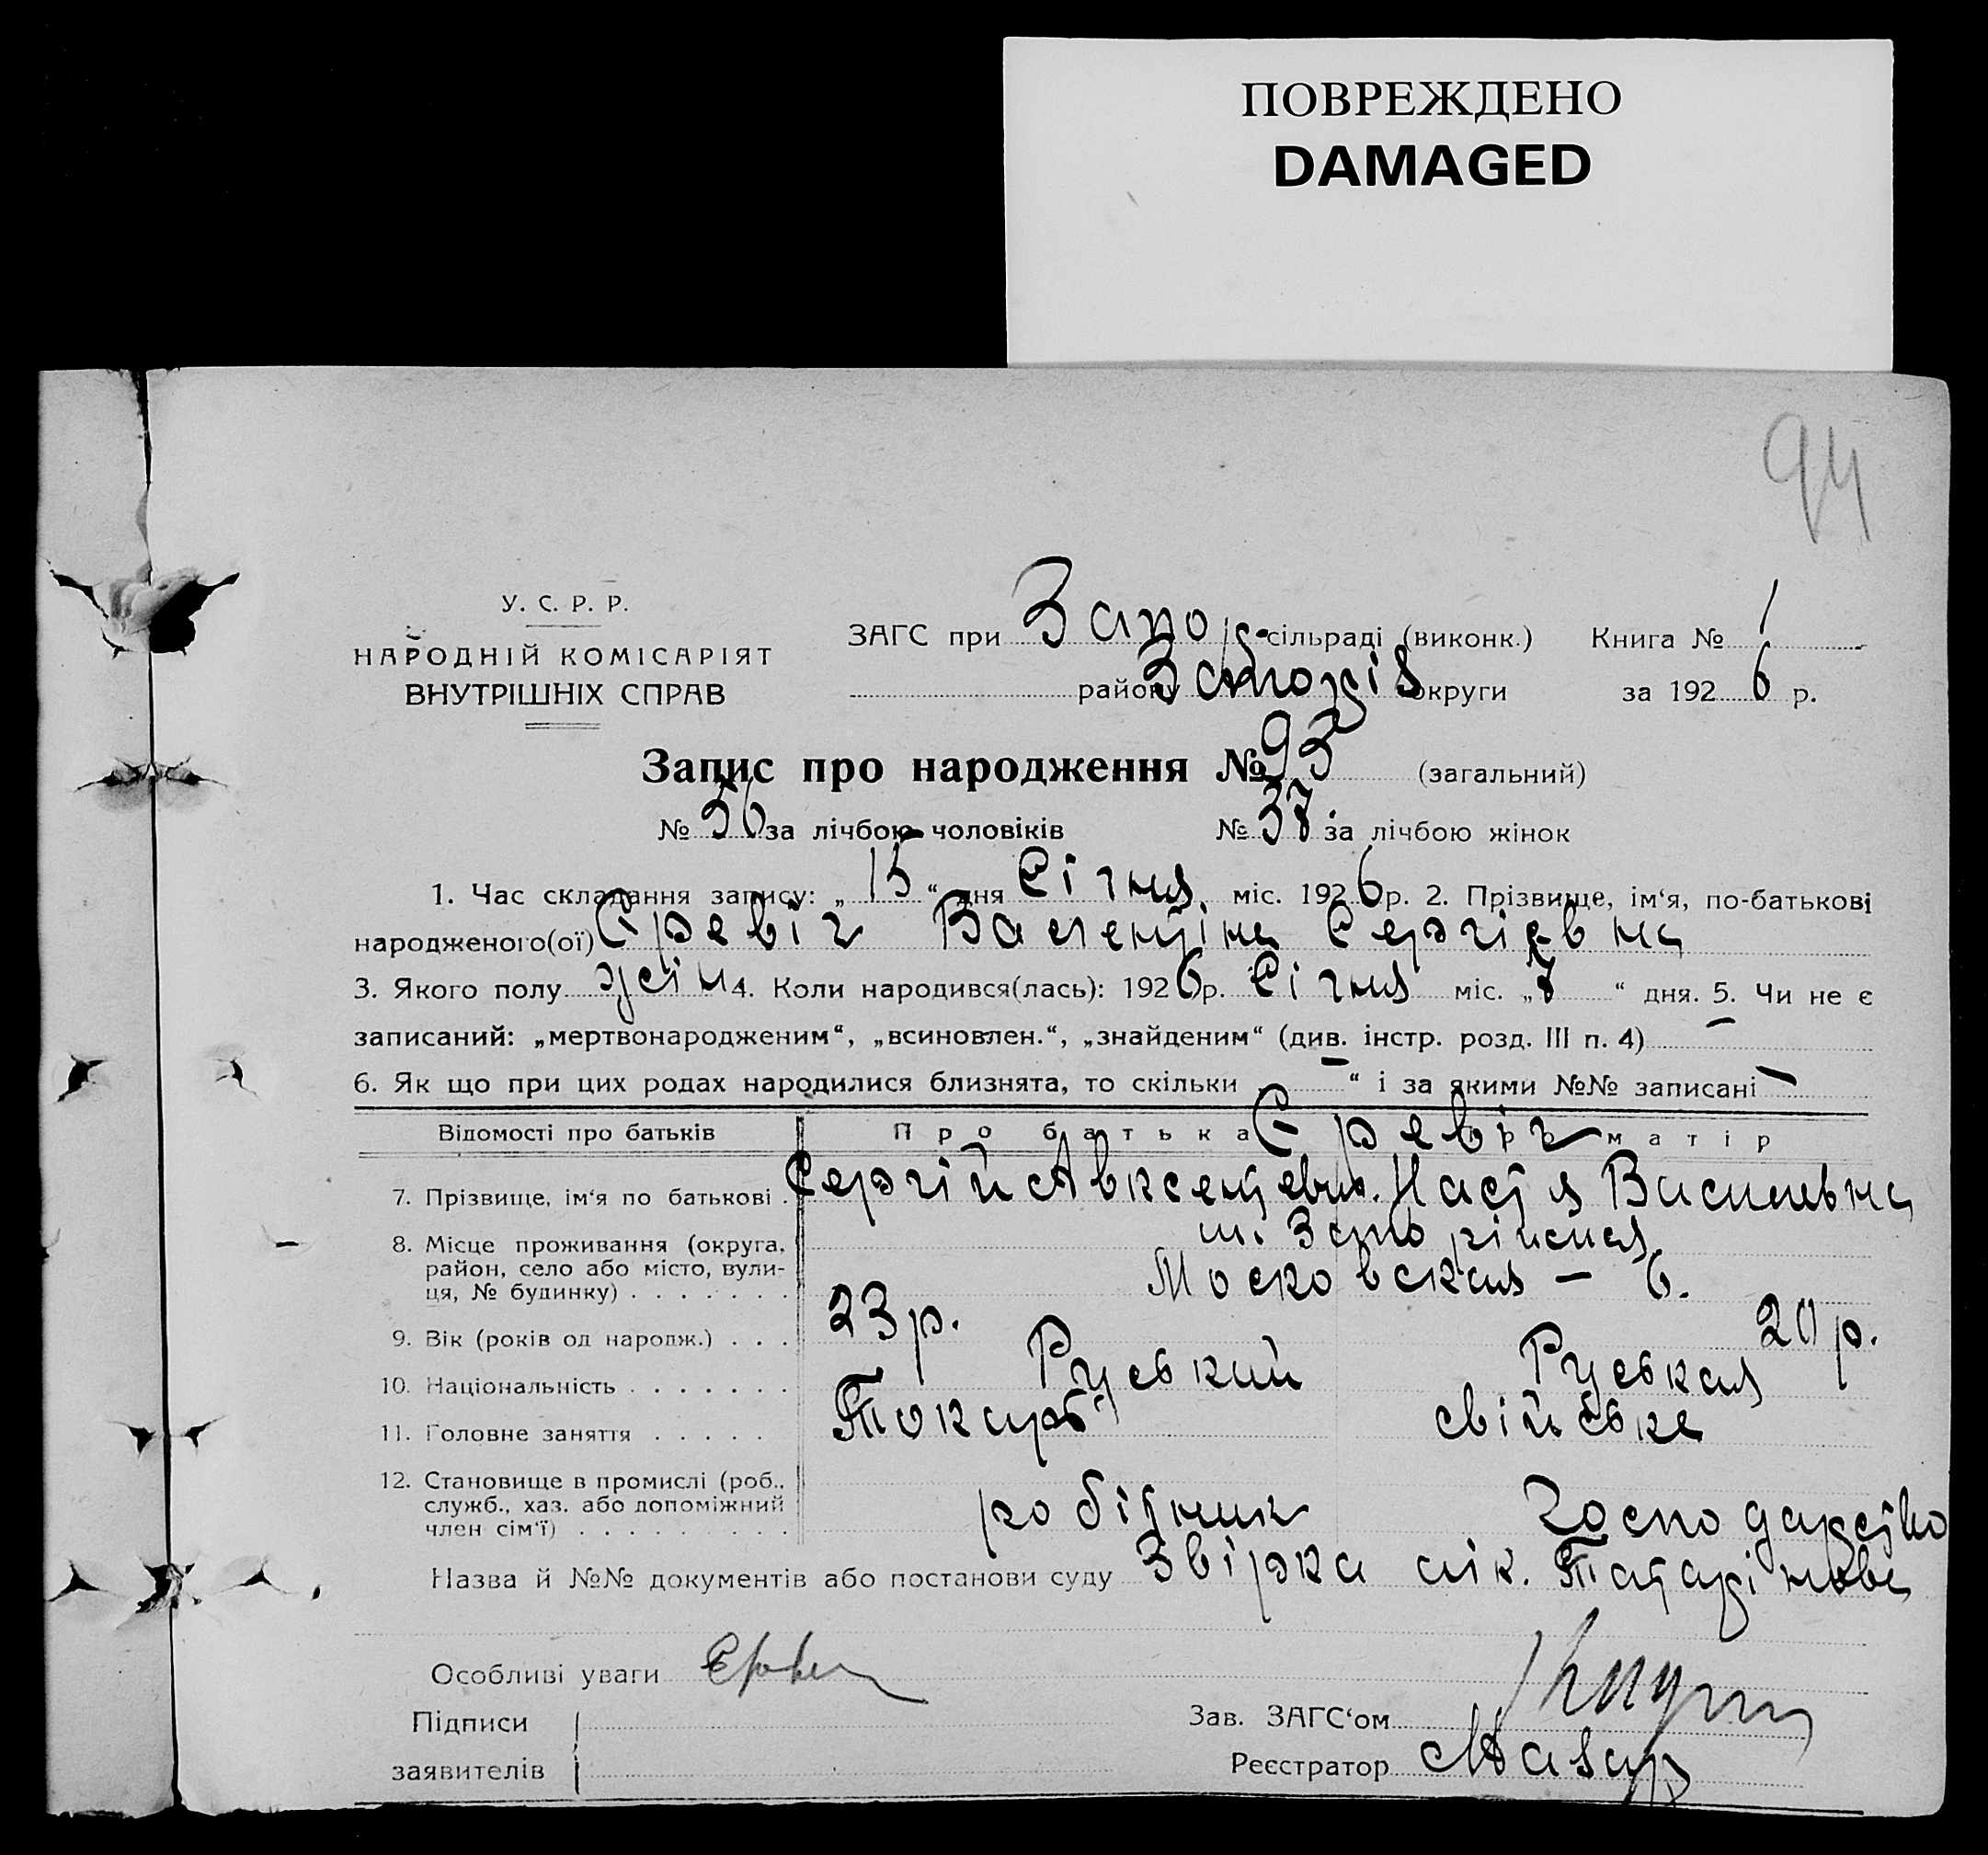 ПОВРЕЖДЕНО
DAMAGED
94
У. С. Р. Р.
НАРОДНІЙ КОМІСАРІЯТ
ВНУТРІШНІХ СПРАВ
ЗАГС при Запор. сільраді (виконк.) Книга № 1
району Запоріз округи за 1926 р.
Запис про народження № 93 (загальний)
№ 56 за лічбою чоловіків № 37 за лічбою жінок
1. Час складання запису: „15“ дня Січня міс. 1926 р. 2. Прізвище, ім‘я, по-батькові
народженого(ої) Валентіна Сергієвна
3. Якого полу жін 4. Коли народився(лась): 1926 р. Січня міс. „7“ дня. 5. Чи не є
записаний: „мертвонародженим“, „всиновлен.“, „знайденим“ (див. інстр. розд. III п. 4) —
6. Як що при цих родах народилися близнята, то скільки „—“ і за якими №№ записані —
Відомості про батьків Про батька Про матір
7. Прізвище, ім‘я по батькові Сергій Авксентевич. Настя Василивна
8. Місце проживання (округа, район, село або місто, вулиця, № будинку)
Московская — 6.
9. Вік (років од народж.) 23 р. 20 р.
10. Національність Руський Руськая
11. Головне заняття Токарь свійське
12. Становище в промислі (роб., служб., хаз. або допоміжний член сім‘ї) робітник господарство
Назва й №№ документів або постанови суду Звірка лік. Татарінова
Особливі уваги
Підписи
заявителів
Зав. ЗАГС‘ом
Реєстратор Назар